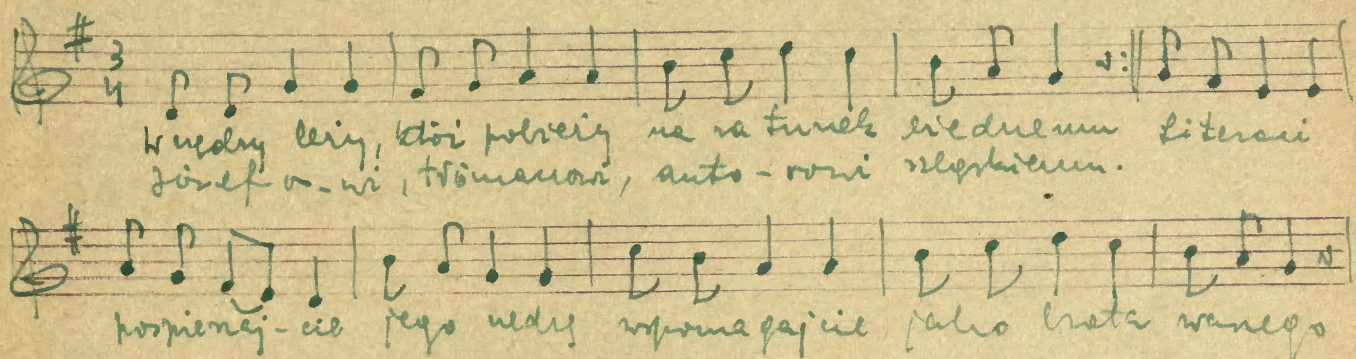 3
4
w nędzy leży, któż pobieży na ratunek biednemu Literaci
Józef o-wi, tromanowi, auto-rowi ślęskiemu.
pospieszaj-cie jego nędzę wspomagajcie jako brata waszego